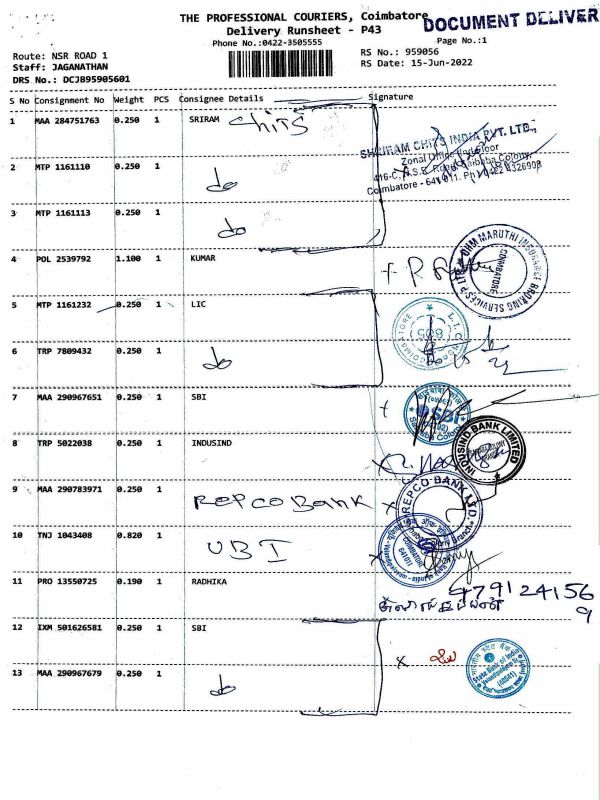 THE PROFESSIONAL COURIERS, Coimbatore
DOCUMENT DELIVER
Delivery Runsheet - P43
Phone No.:0422-3505555
Page No.:1
Route: NSR ROAD 1
RS No.: 959056
Staff: JAGANATHAN
RS Date: 15-Jun-2022
DRS No.: DCJB95905601
S No Consignment No Weight PCS Consignee Details Signature
1 MAA 284751763 0.250 1 SRIRAM chits
SHRIRAM CHITS INDIA PVT. LTD.,
Zonal Office
416-C, N.S.R. Road, Saibaba Colony,
Coimbatore - 641 011. Ph: 0422 4326998
2 MTP 1161110 0.250 1 do
3 MTP 1161113 0.250 1 do
4 POL 2539792 1.100 1 KUMAR
OHM MARUTHI INSURANCE BROKING SERVICES P LTD
COIMBATORE
5 MTP 1161232 0.250 1 LIC
L.I.C
COIMBATORE
6 TRP 7809432 0.250 1 do
7 MAA 290967651 0.250 1 SBI
SBI
Saibaba Colony
8 TRP 5022038 0.250 1 INDUSIND
INDUSIND BANK LIMITED
9 MAA 290783971 0.250 1 REPCO Bank
REPCO BANK LTD
10 TNJ 1043408 0.820 1 UBI
COIMBATORE
641011
11 PRO 13550725 0.190 1 RADHIKA
479124156
9
12 IXM 501626581 0.250 1 SBI
भारतीय स्टेट बैंक
State Bank of India
13 MAA 290967679 0.250 1 do